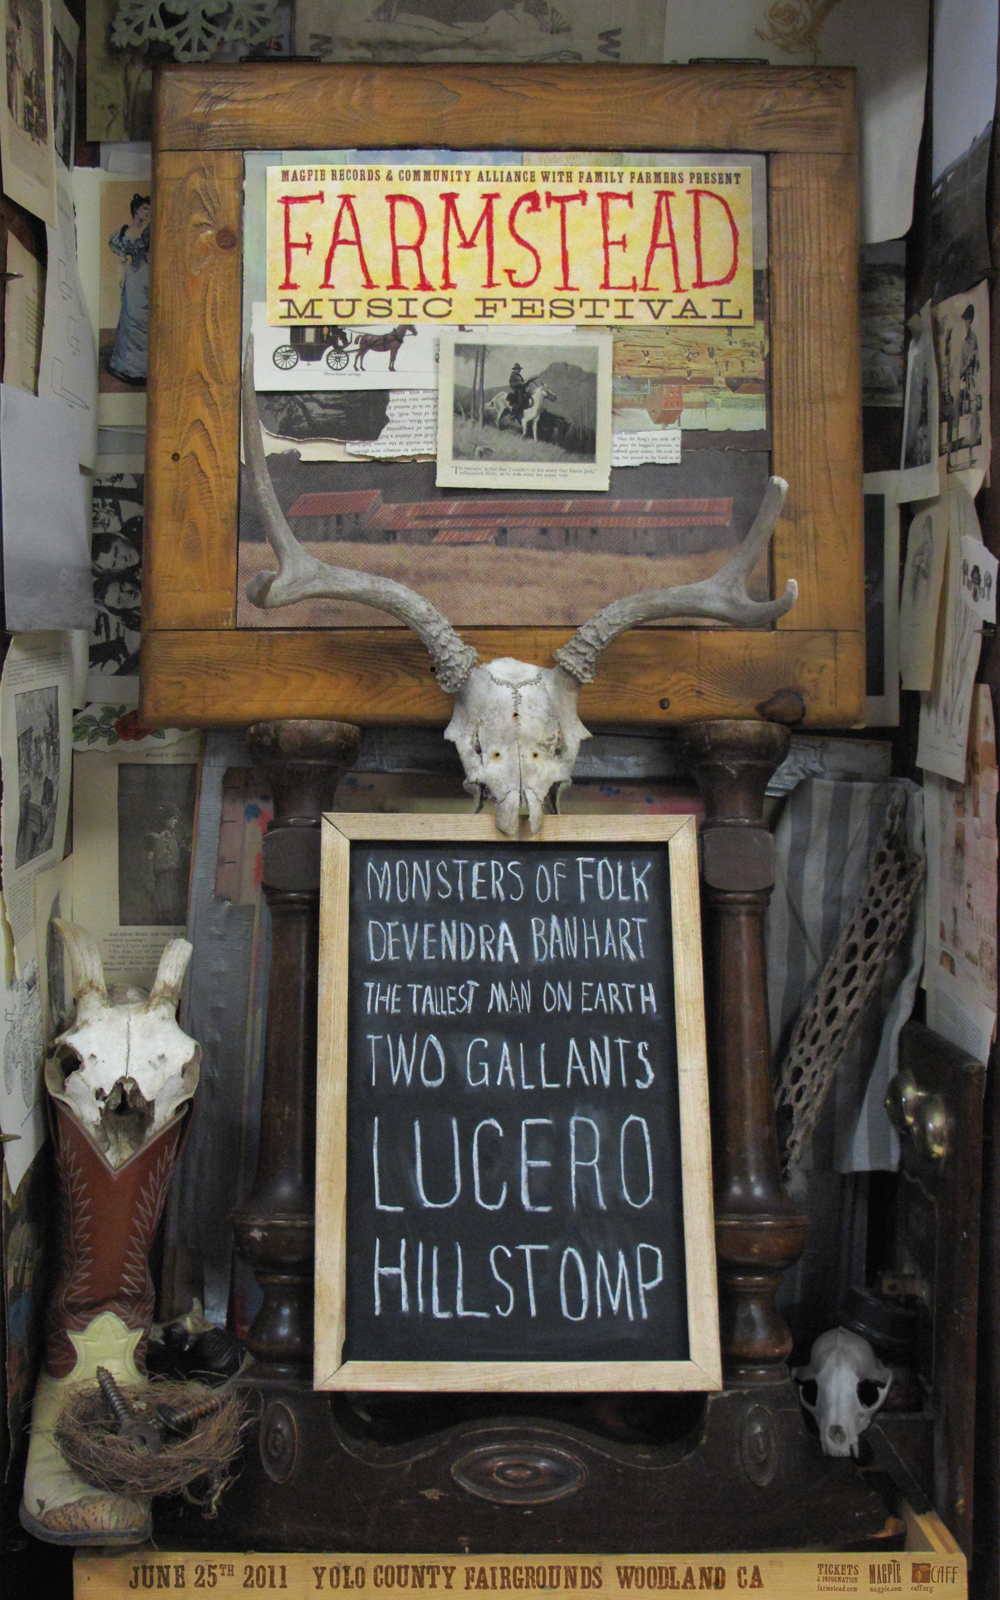 MAGPIE RECORDS & COMMUNITY ALLIANCE WITH FAMILY FARMERS PRESENT
FARMSTEAD
MUSIC FESTIVAL
MONSTERS OF FOLK
DEVENDRA BANHART
THE TALLEST MAN ON EARTH
TWO GALLANTS
LUCERO
HILLSTOMP
JUNE 25TH 2011 YOLO COUNTY FAIRGROUNDS WOODLAND CA
TICKETS
& INFORMATION
farmstead.com
MAGPIE
magpie.com
CAFF
caff.org